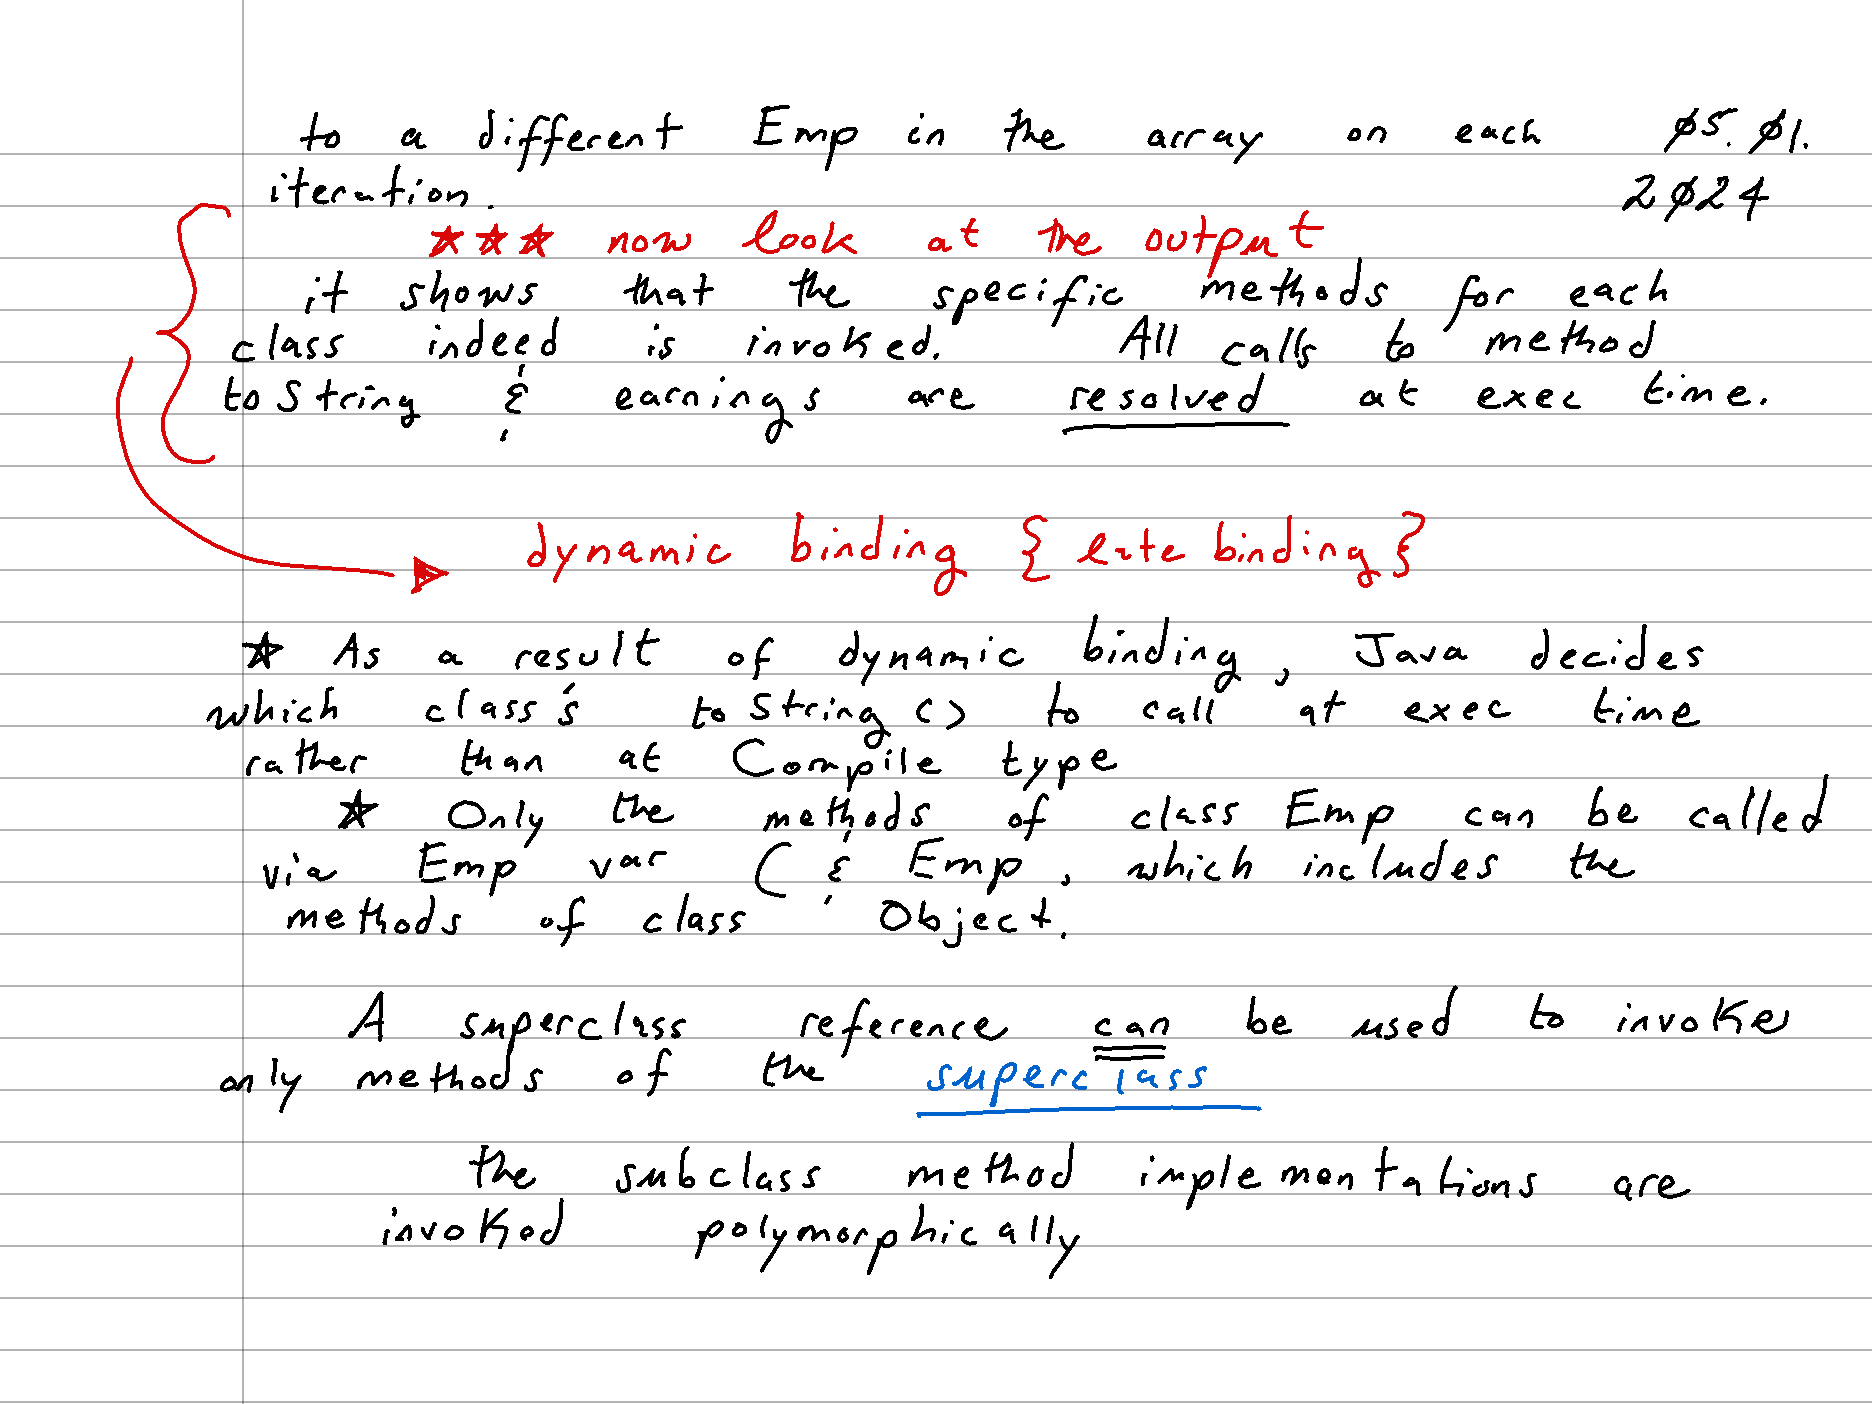 to a different Emp in the array on each ø5. ø1.
iteration. 2ø24
★★★ now look at the output
it shows that the specific methods for each
class indeed is invoked. All calls to method
toString & earnings are resolved at exec time.
dynamic binding { late binding }
★ As a result of dynamic binding, Java decides
which class's toString () to call at exec time
rather than at Compile type
★ Only the methods of class Emp can be called
via Emp var ( & Emp, which includes the
methods of class Object.
A superclass reference can be used to invoke
only methods of the superclass
the subclass method implementations are
invoked polymorphically